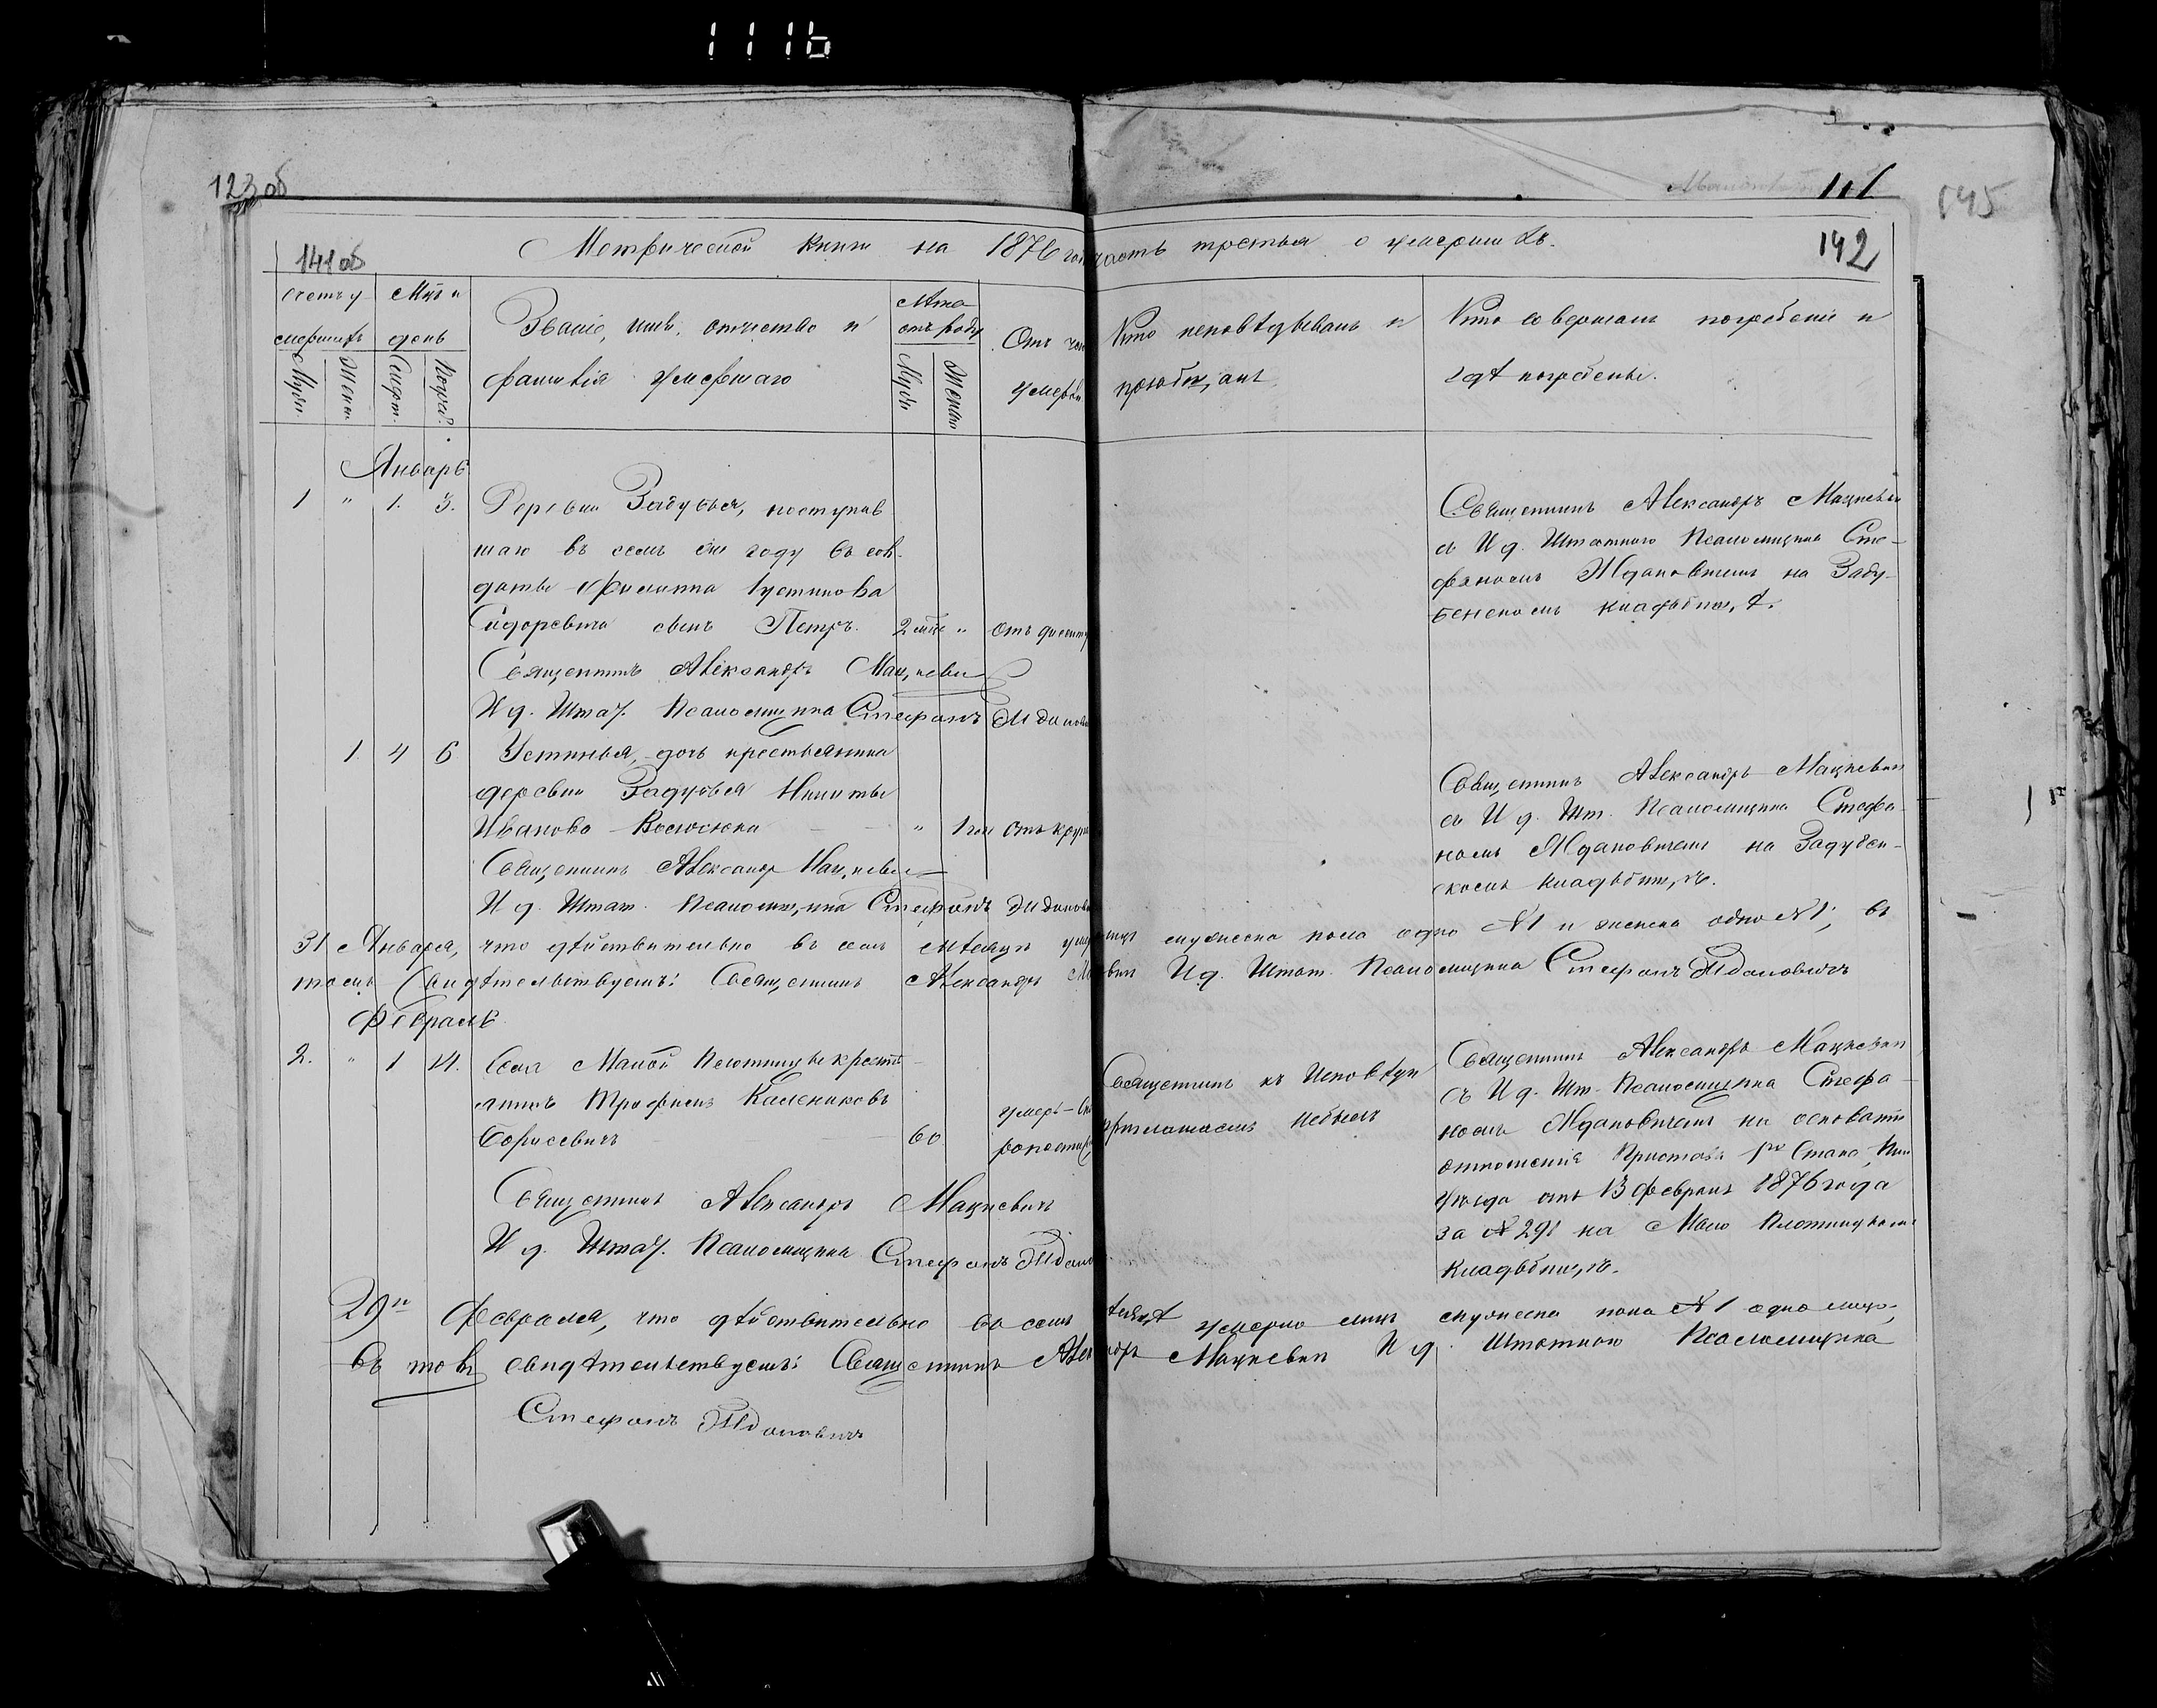 1116
123 об
111
145
141 об
Метрической книги на 1876 годъ часть третья о умершихъ.
142
Счетъ умершихъ
Мужс.
Женс.
Мцъ и день
Смерт.
Погреб.
Званіе, имя, отчество и
фамилія умершаго
Лѣта
отъ роду
Муж.
Женс.
Отъ чего
умеръ
Кто исповѣдывалъ и
пріобщалъ
Кто совершалъ погребеніе и
гдѣ погребены.
Январь
1 " 1. 3. Деревни Задубья, поступив
шаго въ семъ же году въ сол-
даты Филиппа Іустинова
Сидоревича сынъ Петръ. 2 мѣс " отъ
Священникъ Александръ Мацкевич
И д. Штат. Псаломщика Стефанъ Жданов
Священникъ Александръ Мацкевич
съ И д. Штатного Псаломщика Сте-
фаномъ Ждановичемъ на Заду-
бенскомъ кладбищѣ.
1. 4 6 Устинья, дочь крестьянина
деревни Задубья Никиты
Иванова " 1 год отъ крупа
Священникъ Александръ Мацкевич
И д. Штат. Псаломщика Стефанъ Жданов
Священникъ Александръ Мацкевич
съ И д. Шт. Псаломщика Стефа-
номъ Ждановичемъ на Задубен-
скомъ кладбищѣ.
31 Января, что дѣйствительно въ семъ мѣсяцѣ мужеска пола одно №1 и женска одно №1, въ
томъ свидѣтельствуемъ: Священникъ Александръ И д. Штат. Псаломщика Стефанъ Ждановичъ
Февраль
2. " 1 14. Села Малой Плотницы крестья
анинъ Трофимъ Калениковъ
Борисевичъ 60 умеръ
Священникъ къ Исповѣди
приглашаемъ небылъ
Священникъ Александръ Мацкевичъ
И д. Штат. Псаломщика Стефанъ Ждан
Священникъ Александръ Мацкевич
съ И д. Шт. Псаломщика Стефа-
номъ Ждановичемъ на основаніи
отношенія Пристава 1го Стана Пин
уѣзда отъ 13 Февраля 1876 года
за № 291 на Мало Плотницкомъ
кладбищѣ.
29го Февраля, что дѣйствительно въ семъ мѣсяцѣ умерло лицъ мужеска пола №1 одно лицо,
въ томъ свидѣтельствуемъ: Священникъ Александръ Мацкевич И д. Штатного Псаломщика
Стефанъ Ждановичъ